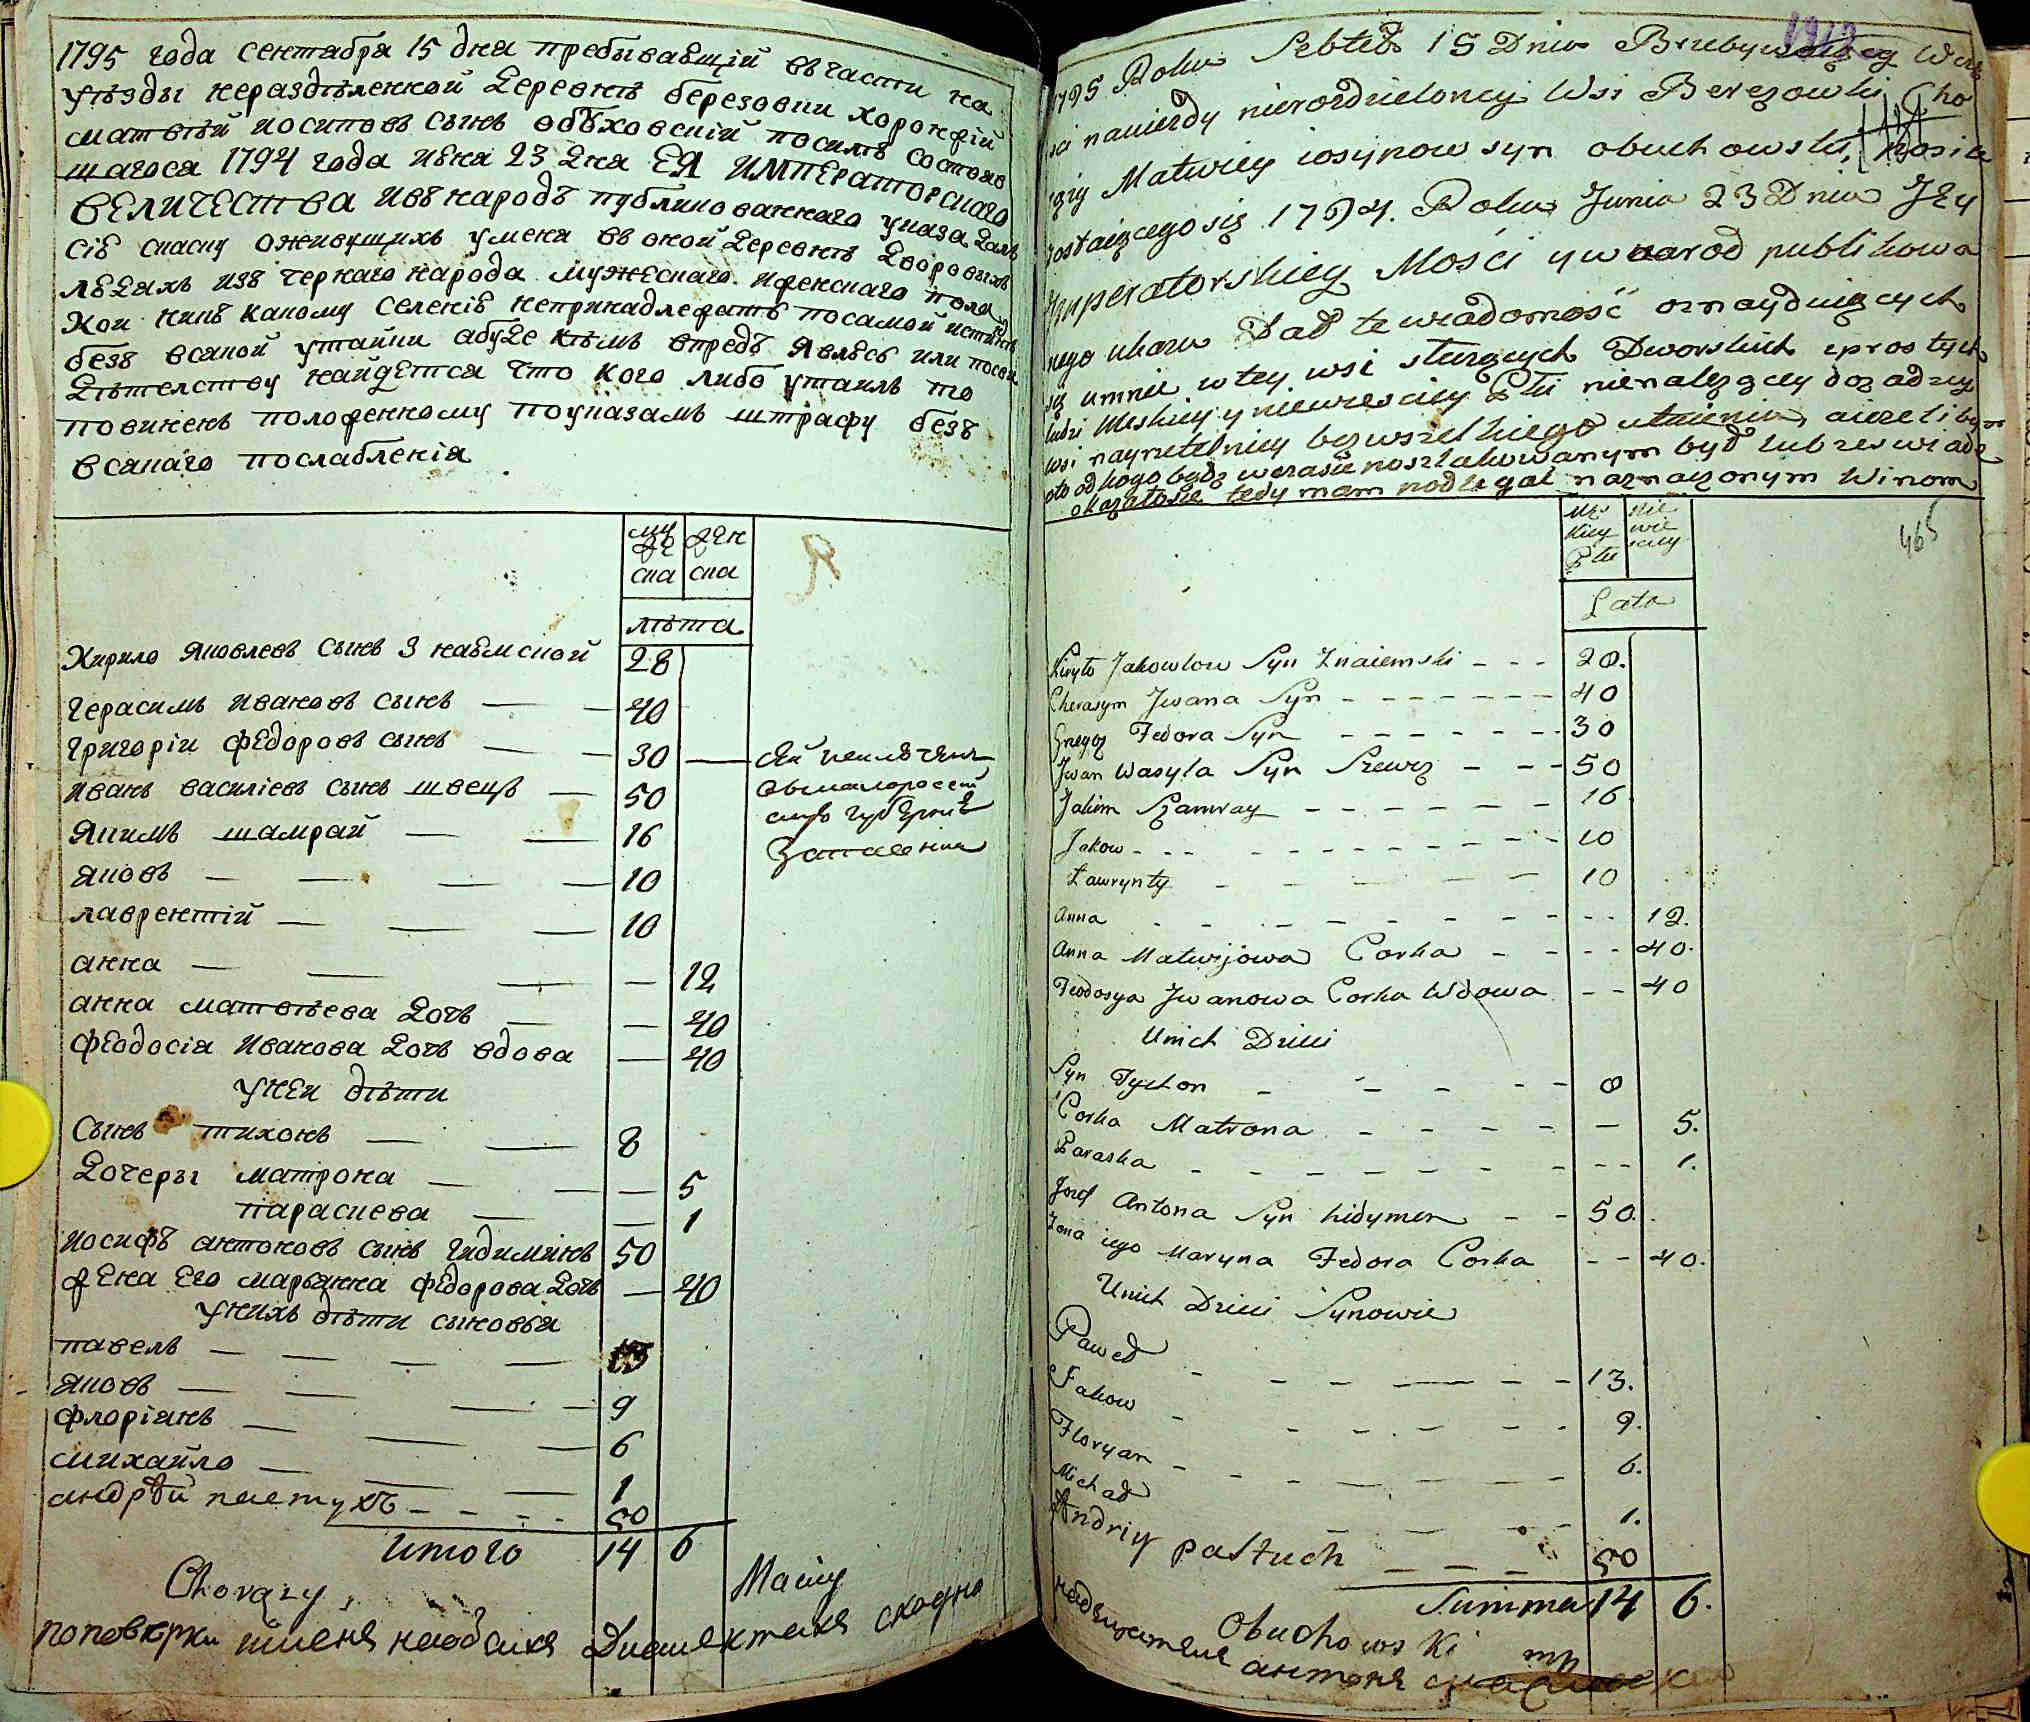 1795 года сентабря 15 дня пребываѣщій въ части на
уѣзды нераздѣленной деревнѣ березовки хоронжій
матвѣй иосиповъ сынъ обуховскій посилѣ состояв
шагося 1794 года июня 23 дня ЕЯ ИМПЕРАТОРСКАГО
ВЕЛИЧЕСТВА ивъ народъ публикованнаго указа далъ
сію сказку оживущихъ уменя въ оной деревнѣ дворовыхъ
людяхъ изъ чернаго народа мужескаго иженскаго пола
кои никъ какому селенію непринадлежатъ посамой истиннѣ
безъ всякой утайки абуде кѣмъ впредъ явлюсь или посви
дѣтелству найдется что кого либо утаилъ то
повиненъ положенному поуказамъ штрафу безъ
всякаго послабленія
му же ска | жен ска
лѣта
Кирило яковлевъ сынъ знаемской 28
герасимъ ивановъ сынъ — — 40
григоріи федоровъ сынъ — — 30
иванъ василіевъ сынъ швецъ — 50
якимъ шамрай — — 16
яковъ — — — — 10
лаврентій — — — 10
анна — — — — 12
анна матвѣева дочь — — 40
феодосія иванова дочь вдова — 40
унеи дѣти
сынъ тихонъ — — 8
дочеры матрона — — — 5
параскева — — 1
иосифъ антоновъ сынъ гидиминъ 50
жена его марьянна федорова дочь — 40
унихъ дѣти сыновья
павелъ — — — — 13
яковъ — — — — 9
флоріянъ — — — 6
михайло — — — 1
андрѣй пастухъ - - - - 50
итого 14 6
Chorąży Maciey
поповѣрки
1795 Roku Sebteb 15 Dnia Brzebywaiący W czę
sci nauiezdy nierozdzieloney Wsi Berezowki Cho
rąży Matwiey iosypow syn obuchowski, Posile
zostaiącego się 1794. Roku Junia 23 Dnia JEy
Imperatorskiey Mości y w narod publikowa
nego ukazu Dał te wiadomość oznayduiących
się umnie w tey wsi służących Dworskich zprostych
ludzi Meskiey y niewiesciey Płci nienależącey dozadney
wsi nayrzetelniey bezwszelkiego utaienia, aiezeli bym
oto od kogo bądz wczasie poszlakowanym był lub zeswiade
okazałosie tedy mam podlegać naznaczonym Winom
465
Męs kiey Płci | nie wie sciey
Lata
Kiryło Jakowlow Syn Znaiemski - - - 28.
Cherasym Jwana Syn - - - - - - 40
Gregoz Fedora Syn - - - - - - - 30
Jwan Wasyla Syn Szewcz - - - 50
Jakim Szamray - - - - - - - 16
Jakow - - - - - - - - - - - 10
Ławrynty - - - - - - 10
Anna - - - - - - - - - - 12.
Anna Matwijowa Corka - - - - 40.
Feodosya Jwanowa Corka Wdowa - - 40
Unich Dzieci
Syn Tychon - - - - - 8
Corka Matrona - - - - - - 5.
Paraska - - - - - - - - - - 1.
Jozef Antona Syn hidymin - - 50.
Zona iego Maryna Fedora Corka - - 40.
Unich Dzieci Synowie
Paweł - - - - - - 13.
Jakow - - - - - - 9.
Floryan - - - - - - 6.
Michał - - - - 1.
Andriy pastuch - - - 50
Summa 14 6.
Obuchowski mp
антонъ